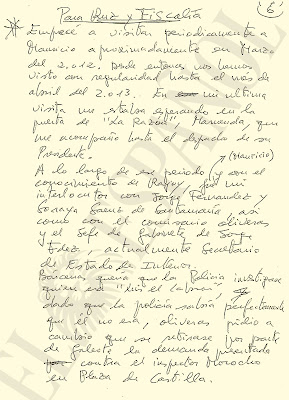 Para Ruz y Fiscalía
6
* Empecé a visitar periodicamente a
Mauricio aproximadamente en Marzo
del 2.012. Desde entonces nos hemos
visto con regularidad hasta el mes de
abril del 2.013. En mi ultima
visita me estaba esperando en la
puerta de "La Razón", Marhuenda, que
me acompaño hasta el despacho de su
Presidente.
(Mauricio)
A lo largo de ese periodo y con el
conocimiento de Rajoy, fue mi
interlocutor con Jorge Fernandez y
Soraya Saenz de Santamaria, así
como con el comisario Olivera
y el Jefe de Gabinete de Jorge
Fdez, actualmente Secretario
de Estado de Interior.
Bárcenas queria que la Policia investigase
quien era "Luis el cabron"
dado que la policia sabía perfectamente
que él no era, Olivera pidio a
cambio que se retirase por parte
de Galeote la demanda presentada
contra el inspector Morocho
en Plaza de Castilla.
EL ESPAÑOL